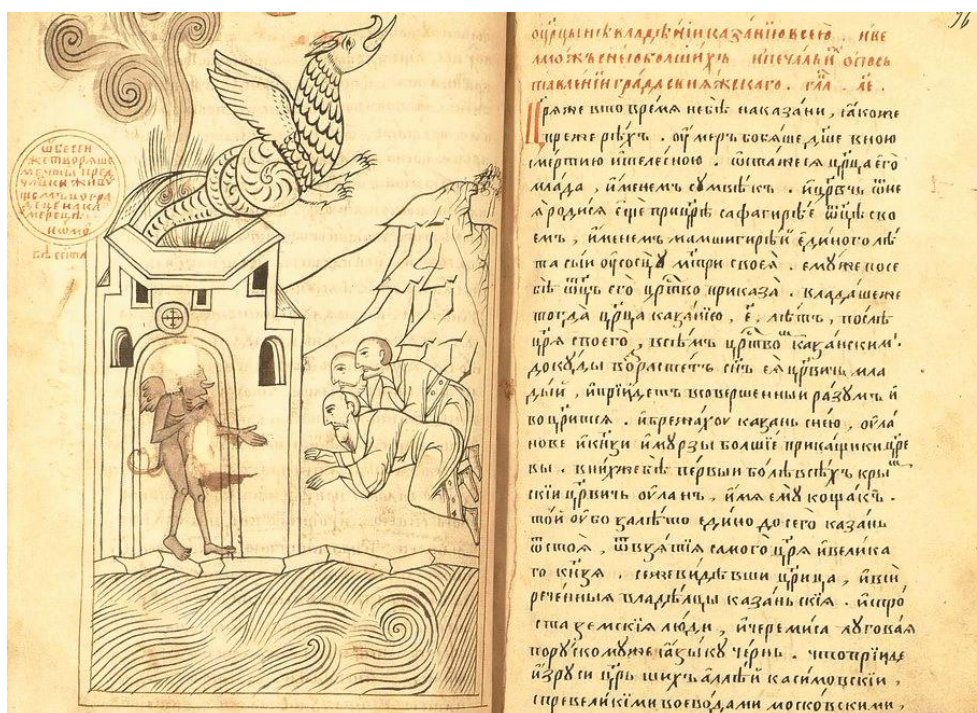 мечты пред
живу
оцр҃цынѣ владѣнїи казанїю всею . и ве
лможъ ѣ нею болшихъ и печали и о пось
тавленїи града свияжскаго . гл҃а . л҃е .
Цр҃я же в то время не бѣ на казани , ꙗкоже
преже рѣхъ . оумеръ бо бяше дш҃евною
смертию и телесною . ѡстажеся цр҃ца его
млада , именемъ сумвѣкъ . и цр҃вчь ѿ нее
родися еще при цр҃ѣ сафагирѣе ѿц҃ѣ сво
емъ , именемъ мамшигирѣй единого лѣ
та сыи оу сосцу мт҃ри своея . емуже по се
бѣ ѿц҃ъ его цр҃тво приказа . владашеже
тогда цр҃ца казанїю , е҃ , лѣтъ , послѣ
цр҃я своего , всѣмъ цр҃твомъ казанскимъ .
докуды возрастетъ сн҃ъ ея цр҃вичь мла
дый , и прїидетъ в совершенныи разумъ и
во цр҃ится . и брежахом казань с нею , оула
нове и кн҃зи и мурзы болшїе прикащики цр҃е
вы . в них же бѣ первыи болѣ всѣхъ кры
скїи цр҃вичь оуланъ , имя ему кощакъ .
той оубо за лѣто едино до сего казань
ѿстоя , ѿ взятїя самого цр҃я и велика
го кн҃зя . се же видѣвши цр҃ица , и вси
реченныя владѣлцы казаньскїя . и про
ста земскїя люди , и черемиса луговая
по рускому же ꙗзыку чернь . что прїиде
из руси цр҃ь шихъ аллѣй касимовскїи ,
с превеликїми воеводами московскими ,